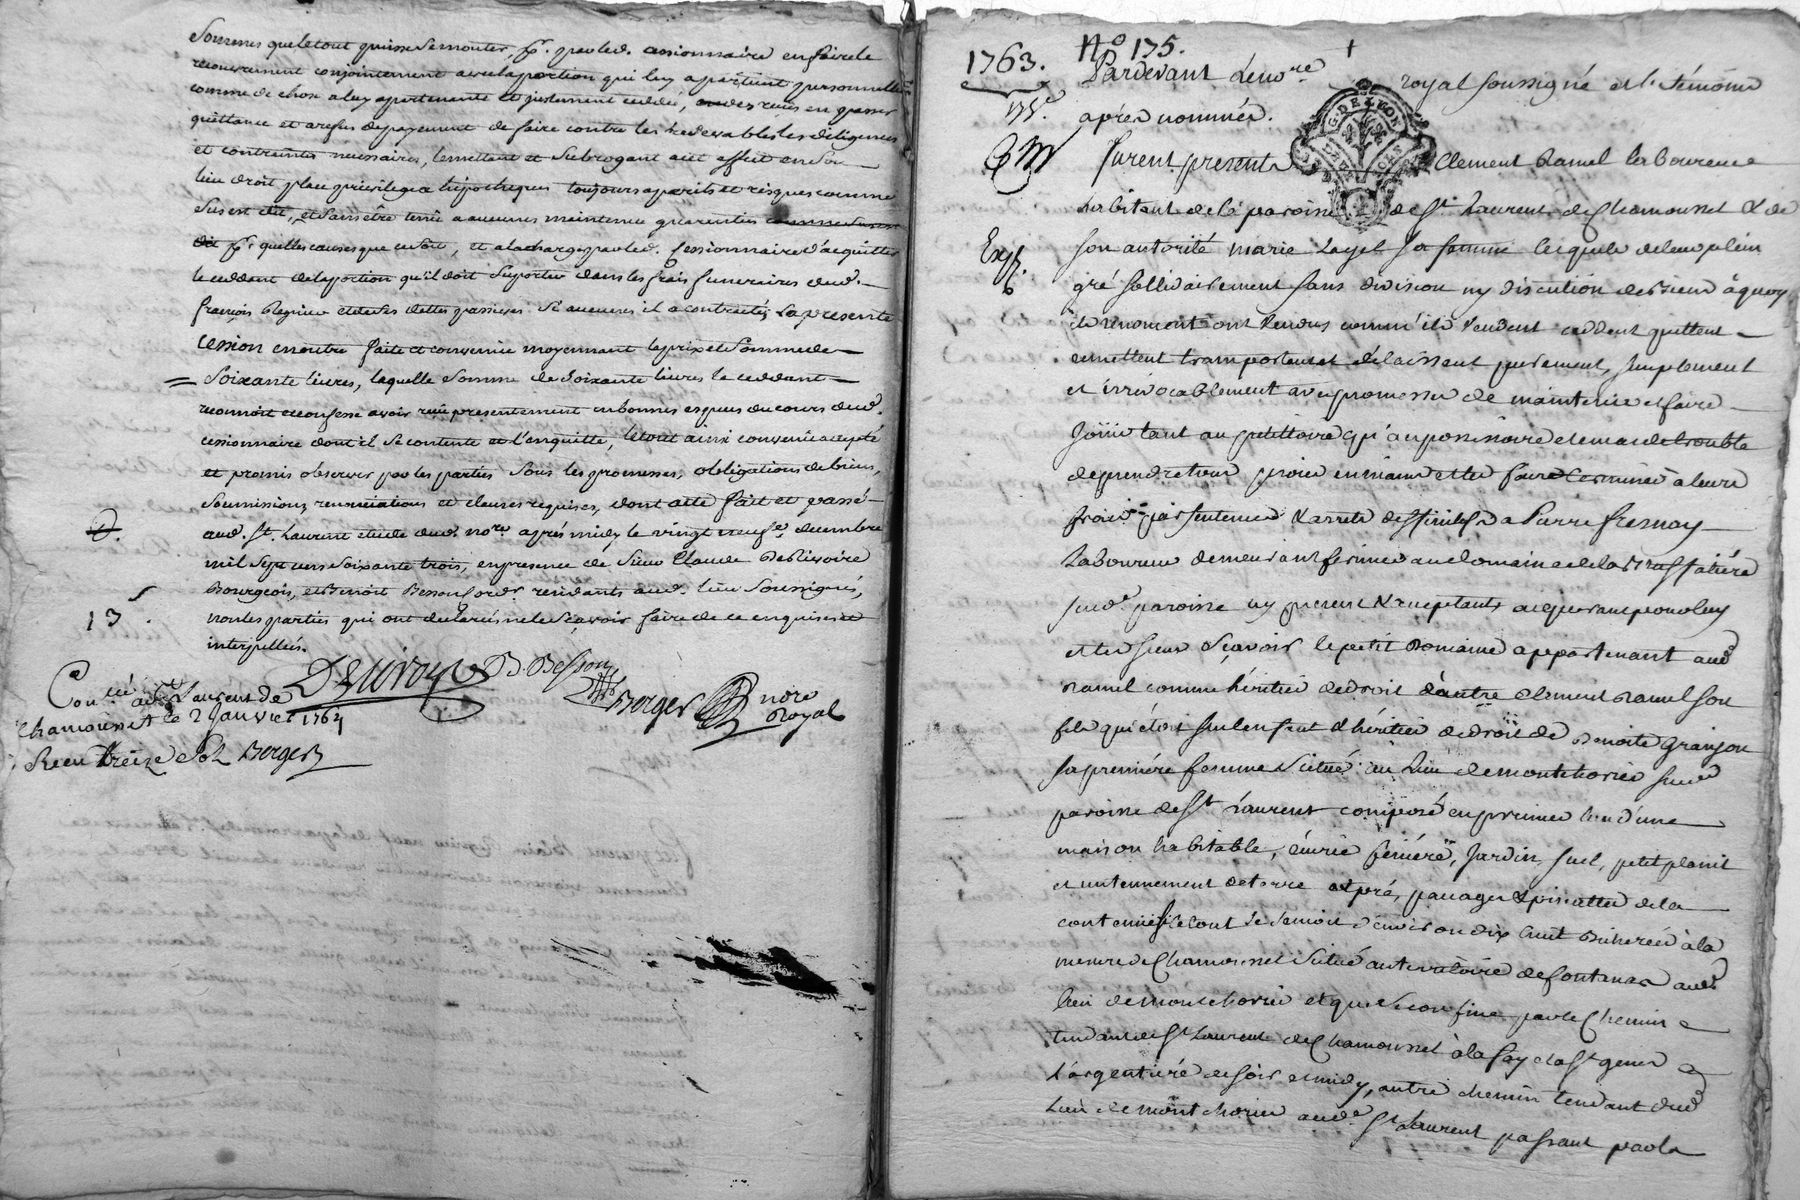 Sommes que le tout puisse se monter, pr. par led. cessionnaire en faire le
recouvrement conjointement avec la portion qui luy apartient personnelle
comme de chose a luy apartenante et justement cedée, en passer
quittance et a refus de payement de faire contre les redevables les diligences
et contraintes necessaires, le mettant et subrogant a cet effet en son
lieu droit place privilege & hipotheques toujours a perils et risques comme
sus est dit, et sans être tenu a aucunes maintenue guarenties
pr. quelles causes que ce soit, et a la charge par led. Cessionnaire d'acquitter
le cedant de la portion qu'il doit suporter dans les frais funeraires dud.
françois et de ses dettes passives si aucunes il a contractés, La presente
Cession en outre faite et convenue moyennant le prix et somme de
Soixante livres, laquelle somme de soixante livres le cedant
reconnoit et confesse avoir reçu presentement en bonnes especes du cours dud.
cessionnaire dont il se contente et l'enquitte, le tout ainsi convenu accepté
et promis observer par les parties sous les promesses, obligations de biens,
soumissions, renonciations et clauses requises, dont acte fait et passé
aud. St. Laurent etude dud. nore après midy le vingt neufe decembre
mil sept cens soixante trois, en presence de Sieur Claude
Bourgeois, et Benoit Besson residants aud. lieu soussignés,
non les parties qui ont declaré ne le sçavoir faire de ce enquises et
interpellées.
13 s.
B. Besson
Berger nore Royal
Conllé a St Laurent de
Chamousset le 2 Janvier 1764
Reçu treize sols Berger
1763. No 175.
Pardevant Le nore royal soussigné et les témoins
175e
après nommés.
furent presents Clement Ramel laboureur
habitant de la paroisse de St. Laurent de Chamousset & de
Exp.
son autorité marie sa femme lesquels de leur plein
gré sollidairement sans division ny discution de biens à quoy
ils renoncent ont vendus comm'ils vendent cedent quittent
remettent transportent et délaissent purement, simplement
et irrévocablement avec promesse de maintenir et faire
Jouir tant au petittoire qu'au possessoire et en cas de trouble
de prendre tour prise en main et les faire terminer à leurs
frais par sentences & arrets deffinitifs a Pierre fresnay
Laboureur demeurant fermier au domaine de la
sud.e paroisse icy present & acceptants acquerant pour luy
et les siens Sçavoir le petit Domaine appartenant aud
Ramel comme héritier de droit d'autre Clement Ramel son
fils qui étoit seul enfant & héritier de droit de Benoite Granjon
sa première femme situé au Lieu de montchorier sud
paroisse de St Laurent composé en premier lieu d'une
maison habitable, écurie feniere, Jardin, suel, petit planit
et un tennement de terre et pré, paccages & pinatte de la
contenue le tout de semer d'environ dix huit bicherées à la
mesure de Chamousset situé au territoire de fontanes aud
lieu de montchorier et que se confine par le Chemin
tendant de St Laurent de Chamousset à la fay et a St genis
L'argentière de soir et midy, autre chemin tendant dud
Lieu de montchorier aud.e St Laurent passant par la